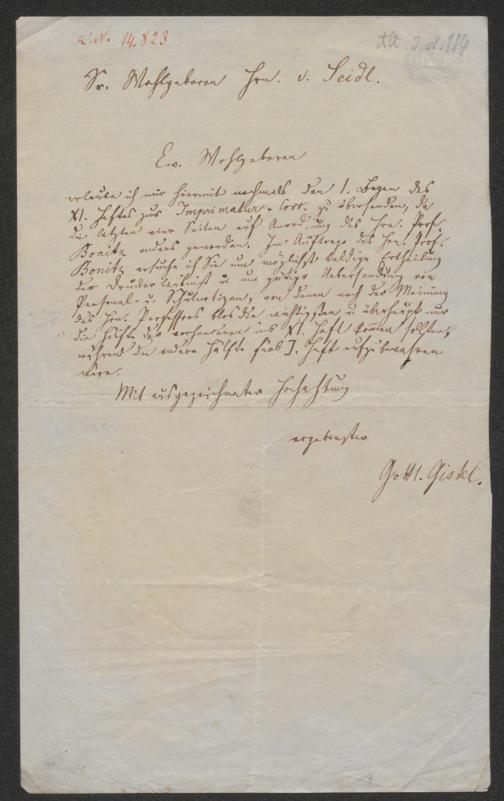 K.N. 14.823
Sr. Wohlgeboren Hrn. v. Seidl.
Ew. Wohlgeboren
erlaube ich mir hiermit nochmals den 1. Bogen des
XI. Heftes zur Imprimatur-Corr. zu übersenden, da
die letzten vier Seiten auf Anordnung des Hrn. Prof.
Bonitz anders geworden. Im Auftrage des Hrn. Prof.
Bonitz ersuche ich Sie um möglichst baldige Ertheilung
der Druckerlaubniß u um gütige Uebersendung von
Personal- u. Schulnotizen, von denen nach der Meinung
des Hrn. Professors blos die wichtigsten u überhaupt nur
die Hälfte der vorhandenen ins XI. Heft kommen sollten,
während die andere Hälfte fürs I. Heft aufzubewahren
wäre.
Mit ausgezeichneter Hochachtung
ergebenster
Gottl. Gistel.